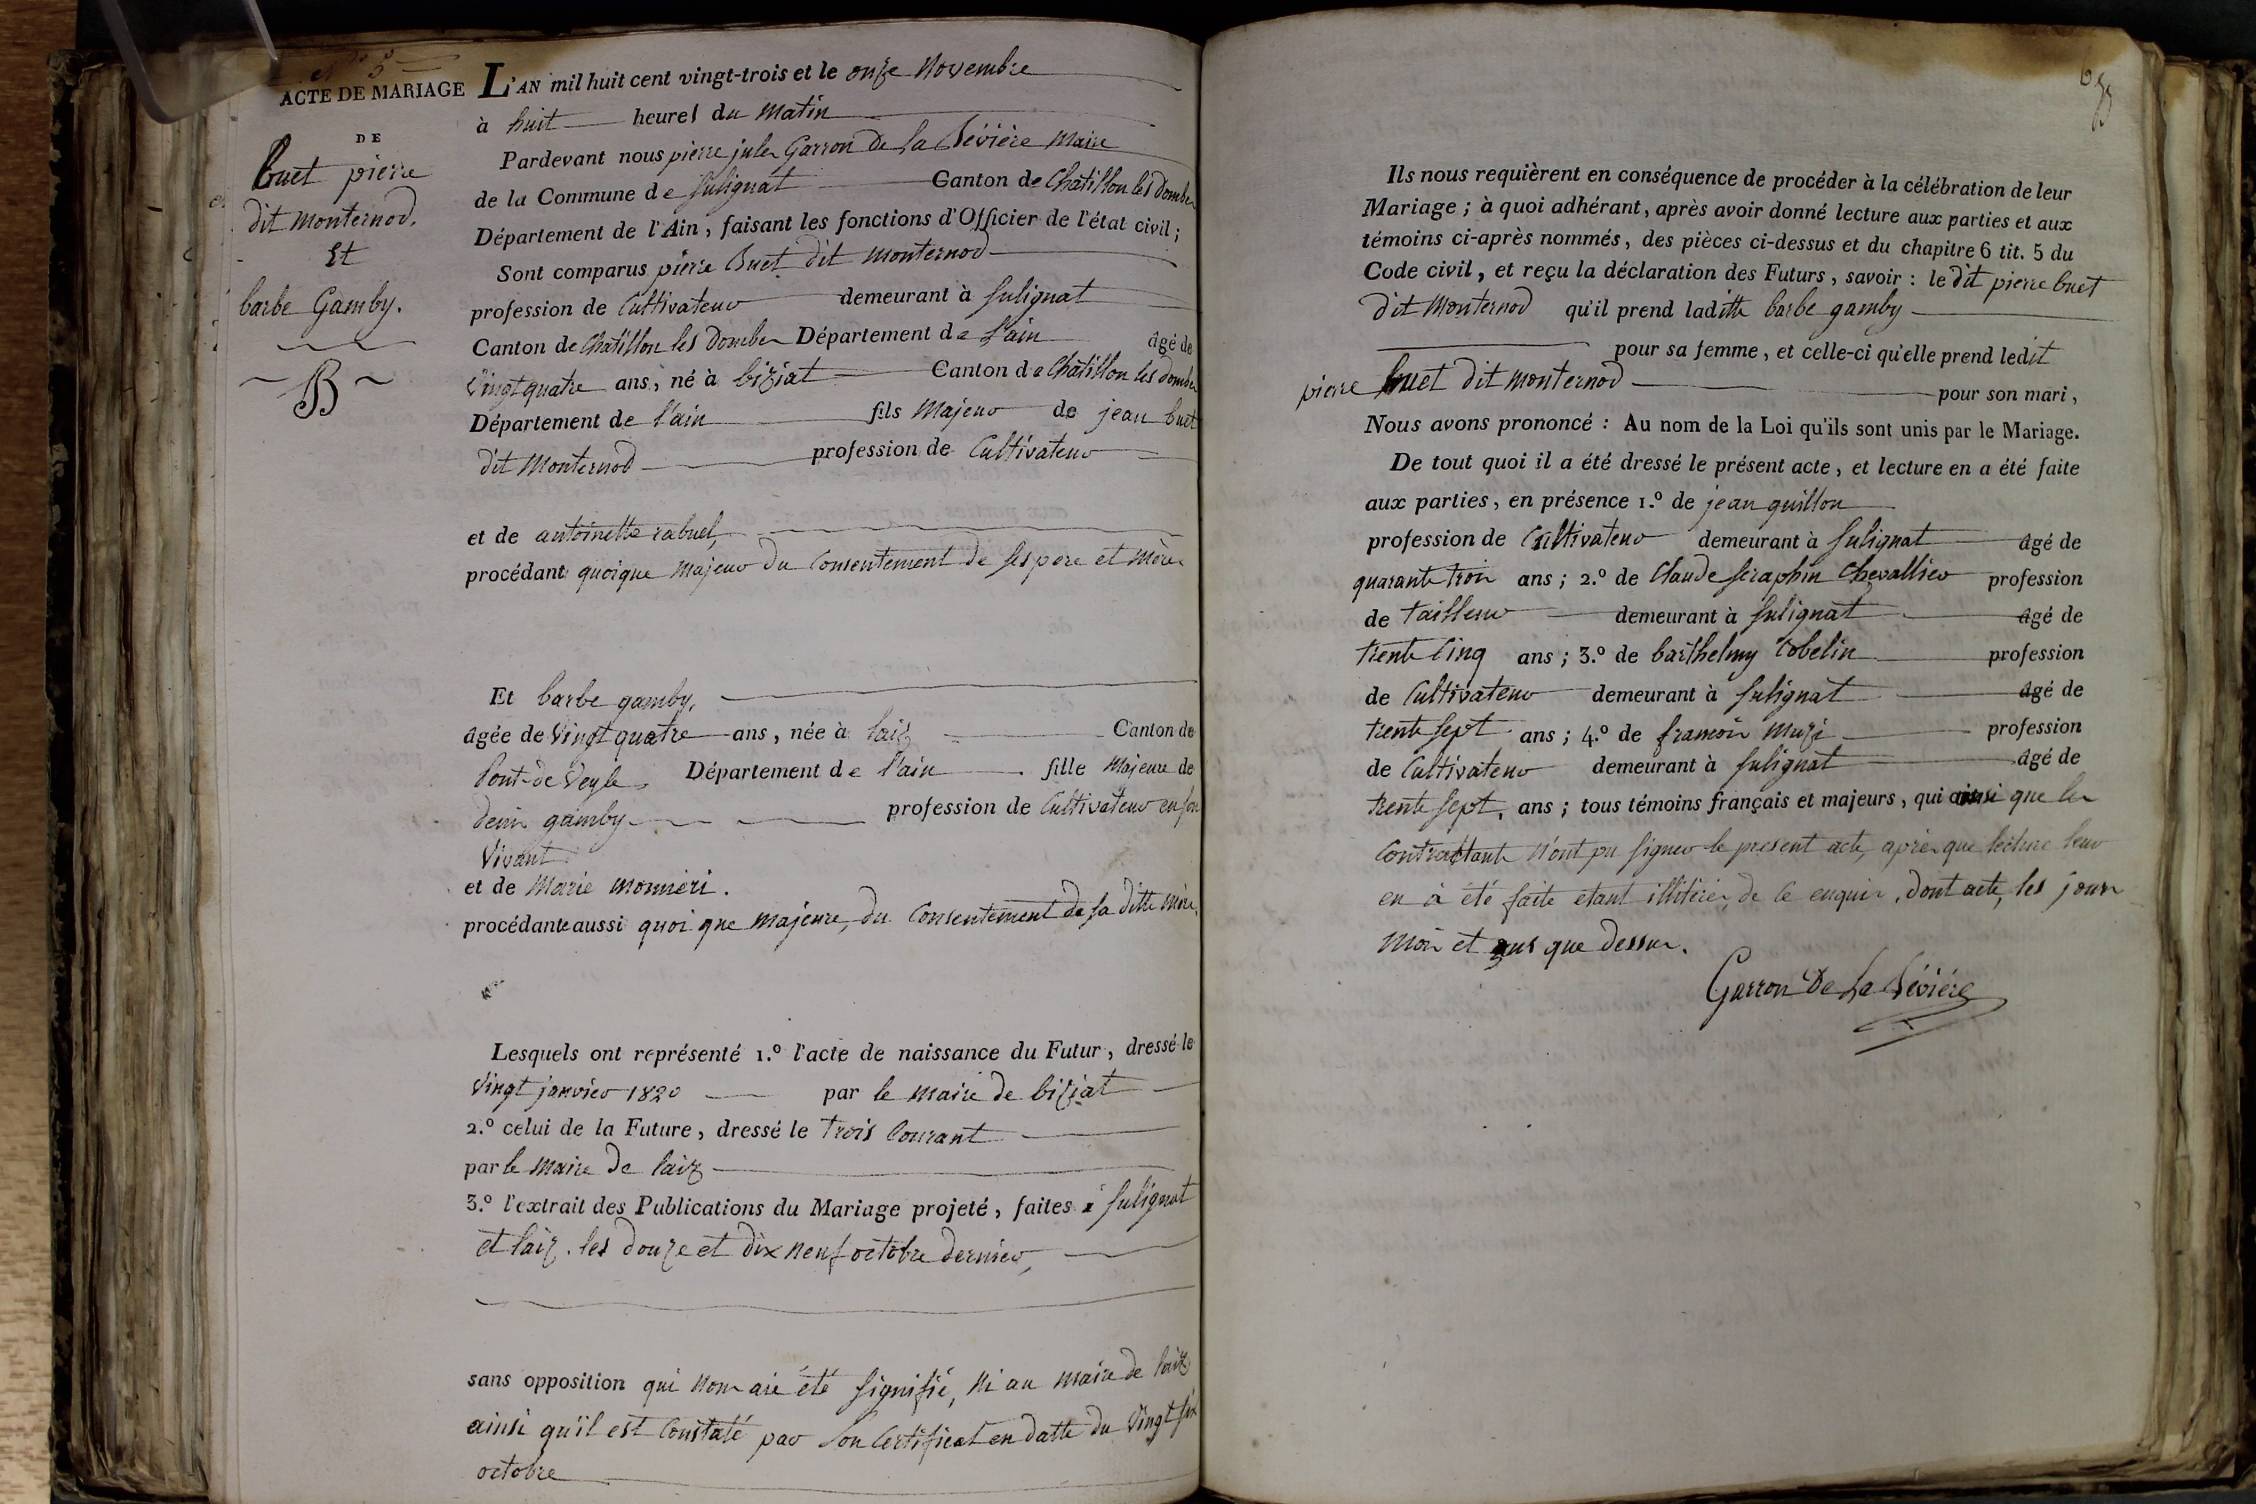 N.° 5
ACTE DE MARIAGE
DE
buet pierre
dit monternod.
Et
barbe Gamby.
B
L'AN mil huit cent vingt-trois et le onze Novembre
à huit heures du matin
Pardevant nous pierre jules Garron De La Bévière Maire
de la Commune de sulignat Canton de Chatillon les Dombes
Département de l'Ain, faisant les fonctions d'Officier de l'état civil;
Sont comparus pierre Buet dit monternod
profession de Cultivateur demeurant à sulignat
Canton de Chatillon les Dombes Département de l'ain âgé de
Vingt quatre ans, né à biziat Canton de Chatillon les dombes
Département de l'ain fils Majeur de jean buet
dit Monternod profession de Cultivateur
et de antoinette rabuel,
procédant quoique majeur du Consentement de ses pere et mère
Et barbe gamby,
âgée de Vingt quatre ans, née à laiz Canton de
Pont-de-Veyle Département de l'ain fille Majeure de
denis gamby profession de Cultivateur en son
Vivant
et de Marie monnieri.
procédante aussi quoi que majeure, du Consentement de sa ditte mère,
Lesquels ont représenté 1.° l'acte de naissance du Futur, dressé le
Vingt janvier 1820 par le maire de biziat
2.° celui de la Future, dressé le trois Courant
par le maire de laiz
3.° l'extrait des Publications du Mariage projeté, faites à sulignat
et laiz. les douze et dix neuf octobre dernier,
sans opposition qui nous aie été signifié, ni au maire de laiz
ainsi qu'il est Constaté par son Certificat en datte du Vingt six
octobre
Ils nous requièrent en conséquence de procéder à la célébration de leur
Mariage; à quoi adhérant, après avoir donné lecture aux parties et aux
témoins ci-après nommés, des pièces ci-dessus et du chapitre 6 tit. 5 du
Code civil, et reçu la déclaration des Futurs, savoir: le dit pierre buet
dit Monternod qu'il prend laditte barbe gamby
pour sa femme, et celle-ci qu'elle prend ledit
pierre buet dit monternod pour son mari,
Nous avons prononcé: Au nom de la Loi qu'ils sont unis par le Mariage.
De tout quoi il a été dressé le présent acte, et lecture en a été faite
aux parties, en présence 1.° de jean guillon
profession de Cultivateur demeurant à sulignat âgé de
quarante trois ans; 2.° de Claude seraphin Chevallier profession
de tailleur demeurant à sulignat âgé de
trente Cinq ans; 3.° de barthelmy Cobelin profession
de Cultivateur demeurant à sulignat âgé de
trente sept ans; 4.° de francois muzi profession
de Cultivateur demeurant à sulignat âgé de
trente sept, ans; tous témoins français et majeurs, qui ainsi que les
Contractants n'ont pu signer le present acte, après que lecture leur
en à été faite etant illitérés de ce enquis, dont acte, les jour
Mois et ans que dessus.
Garron De La Bévière